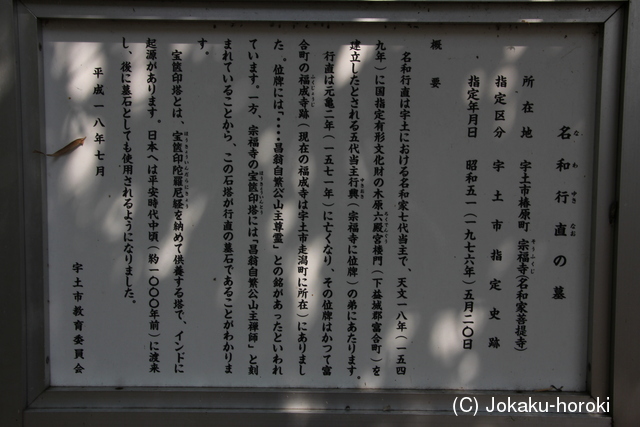 名和行直の墓
なわ ゆき なお
所在地 宇土市椿原町 宗福寺(名和家菩提寺)
そうふくじ
指定区分 宇土市指定史跡
指定年月日 昭和五一(一九七六年)五月二〇日
概要
名和行直は宇土における名和家七代当主で、天文一八年(一五四
九年)に国指定有形文化財の木原六殿宮楼門(下益城郡富合町)を
建立したとされる五代当主行興(宗福寺に位牌)の弟にあたります。
行直は元亀二年(一五七一年)に亡くなり、その位牌はかつて富
合町の福成寺跡(現在の福成寺は宇土市走潟町に所在)にありまし
た。位牌には「・・・・昌翁自繁公山主尊霊」との銘があったといわれ
ています。一方、宗福寺の宝篋印塔には「昌翁自繁公山主禅師」と刻
まれていることから、この石塔が行直の墓石であることがわかりま
す。
宝篋印塔とは、宝篋印陀羅尼経を納めて供養する塔で、インドに
起源があります。日本へは平安時代中頃(約一〇〇〇年前)に渡来
し、後に墓石としても使用されるようになりました。
平成一八年七月
宇土市教育委員会
(C) Jokaku-horoki